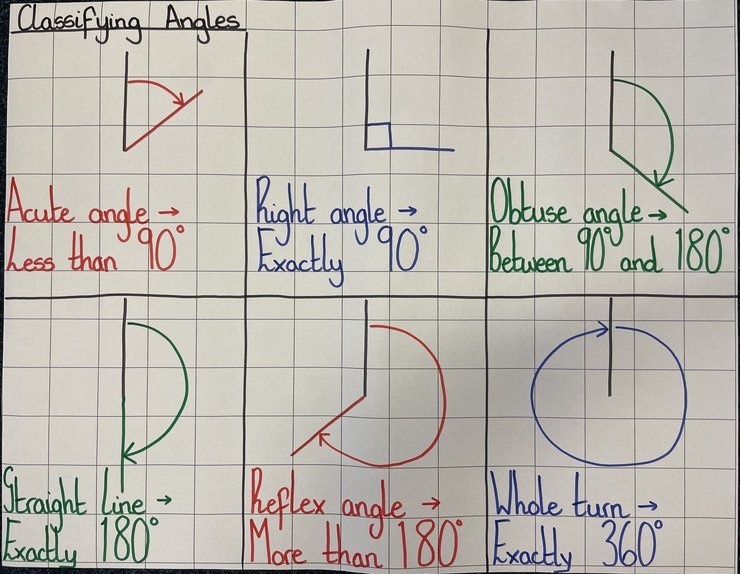 Classifying Angles
Acute angle →
Less than 90°
Right angle →
Exactly 90°
Obtuse angle →
Between 90° and 180°
Straight line →
Exactly 180°
Reflex angle →
More than 180°
Whole turn →
Exactly 360°